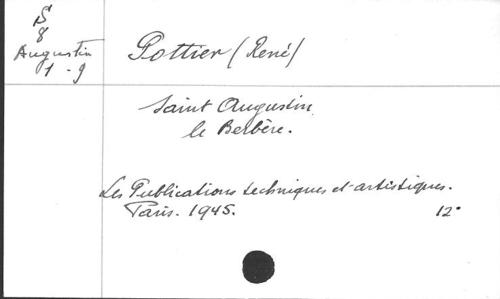 S
8
Augustin
1-9
Pottier (René)
Saint Augustin
le Berbère.
Les Publications techniques et artistiques.
Paris. 1945. 12°